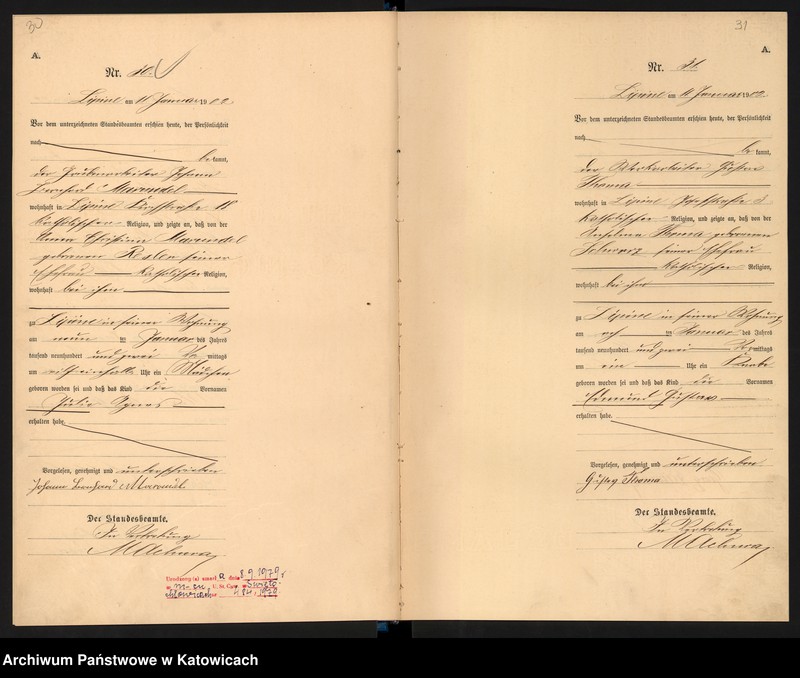 30
A.
Nr. 30.
Lipine am 11 Januar 1902
Vor dem unterzeichneten Standesbeamten erschien heute, der Persönlichkeit
nach
be kannt,
der Johann
Bernhard Marendel
wohnhaft in Lipine Kirchstraße 18
katholischer Religion, und zeigte an, daß von der
Christina Marendel
geborenen seiner
Ehefrau katholischer Religion,
wohnhaft bei ihm
zu Lipine in seiner Wohnung
am neun ten Januar des Jahres
tausend neunhundert und zwei mittags
um Uhr ein Mädchen
geboren worden sei und daß das Kind die Vornamen
Julie Agnes
erhalten habe.
Vorgelesen, genehmigt und unterschrieben
Johann Bernhard Marendel
Der Standesbeamte.
In Vertretung
Urodzony(a) zmarł a dnia 8.9.1979 r
w U. St. Cyw. w Święto-
chłowicach nr 484, 1979
31
A.
Nr. 31.
Lipine am 11 Januar 1902.
Vor dem unterzeichneten Standesbeamten erschien heute, der Persönlichkeit
nach
be kannt,
der Gustav
Thoma
wohnhaft in Lipine
katholischer Religion, und zeigte an, daß von der
Anselma Thoma geborenen
Schwarz seiner Ehefrau
katholischer Religion,
wohnhaft bei ihm
zu Lipine in seiner Wohnung
am ten Januar des Jahres
tausend neunhundert und zwei mittags
um ein Uhr ein Knabe
geboren worden sei und daß das Kind die Vornamen
Edmund Gustav
erhalten habe.
Vorgelesen, genehmigt und unterschrieben
Gustav Thoma
Der Standesbeamte.
In Vertretung
Archiwum Państwowe w Katowicach